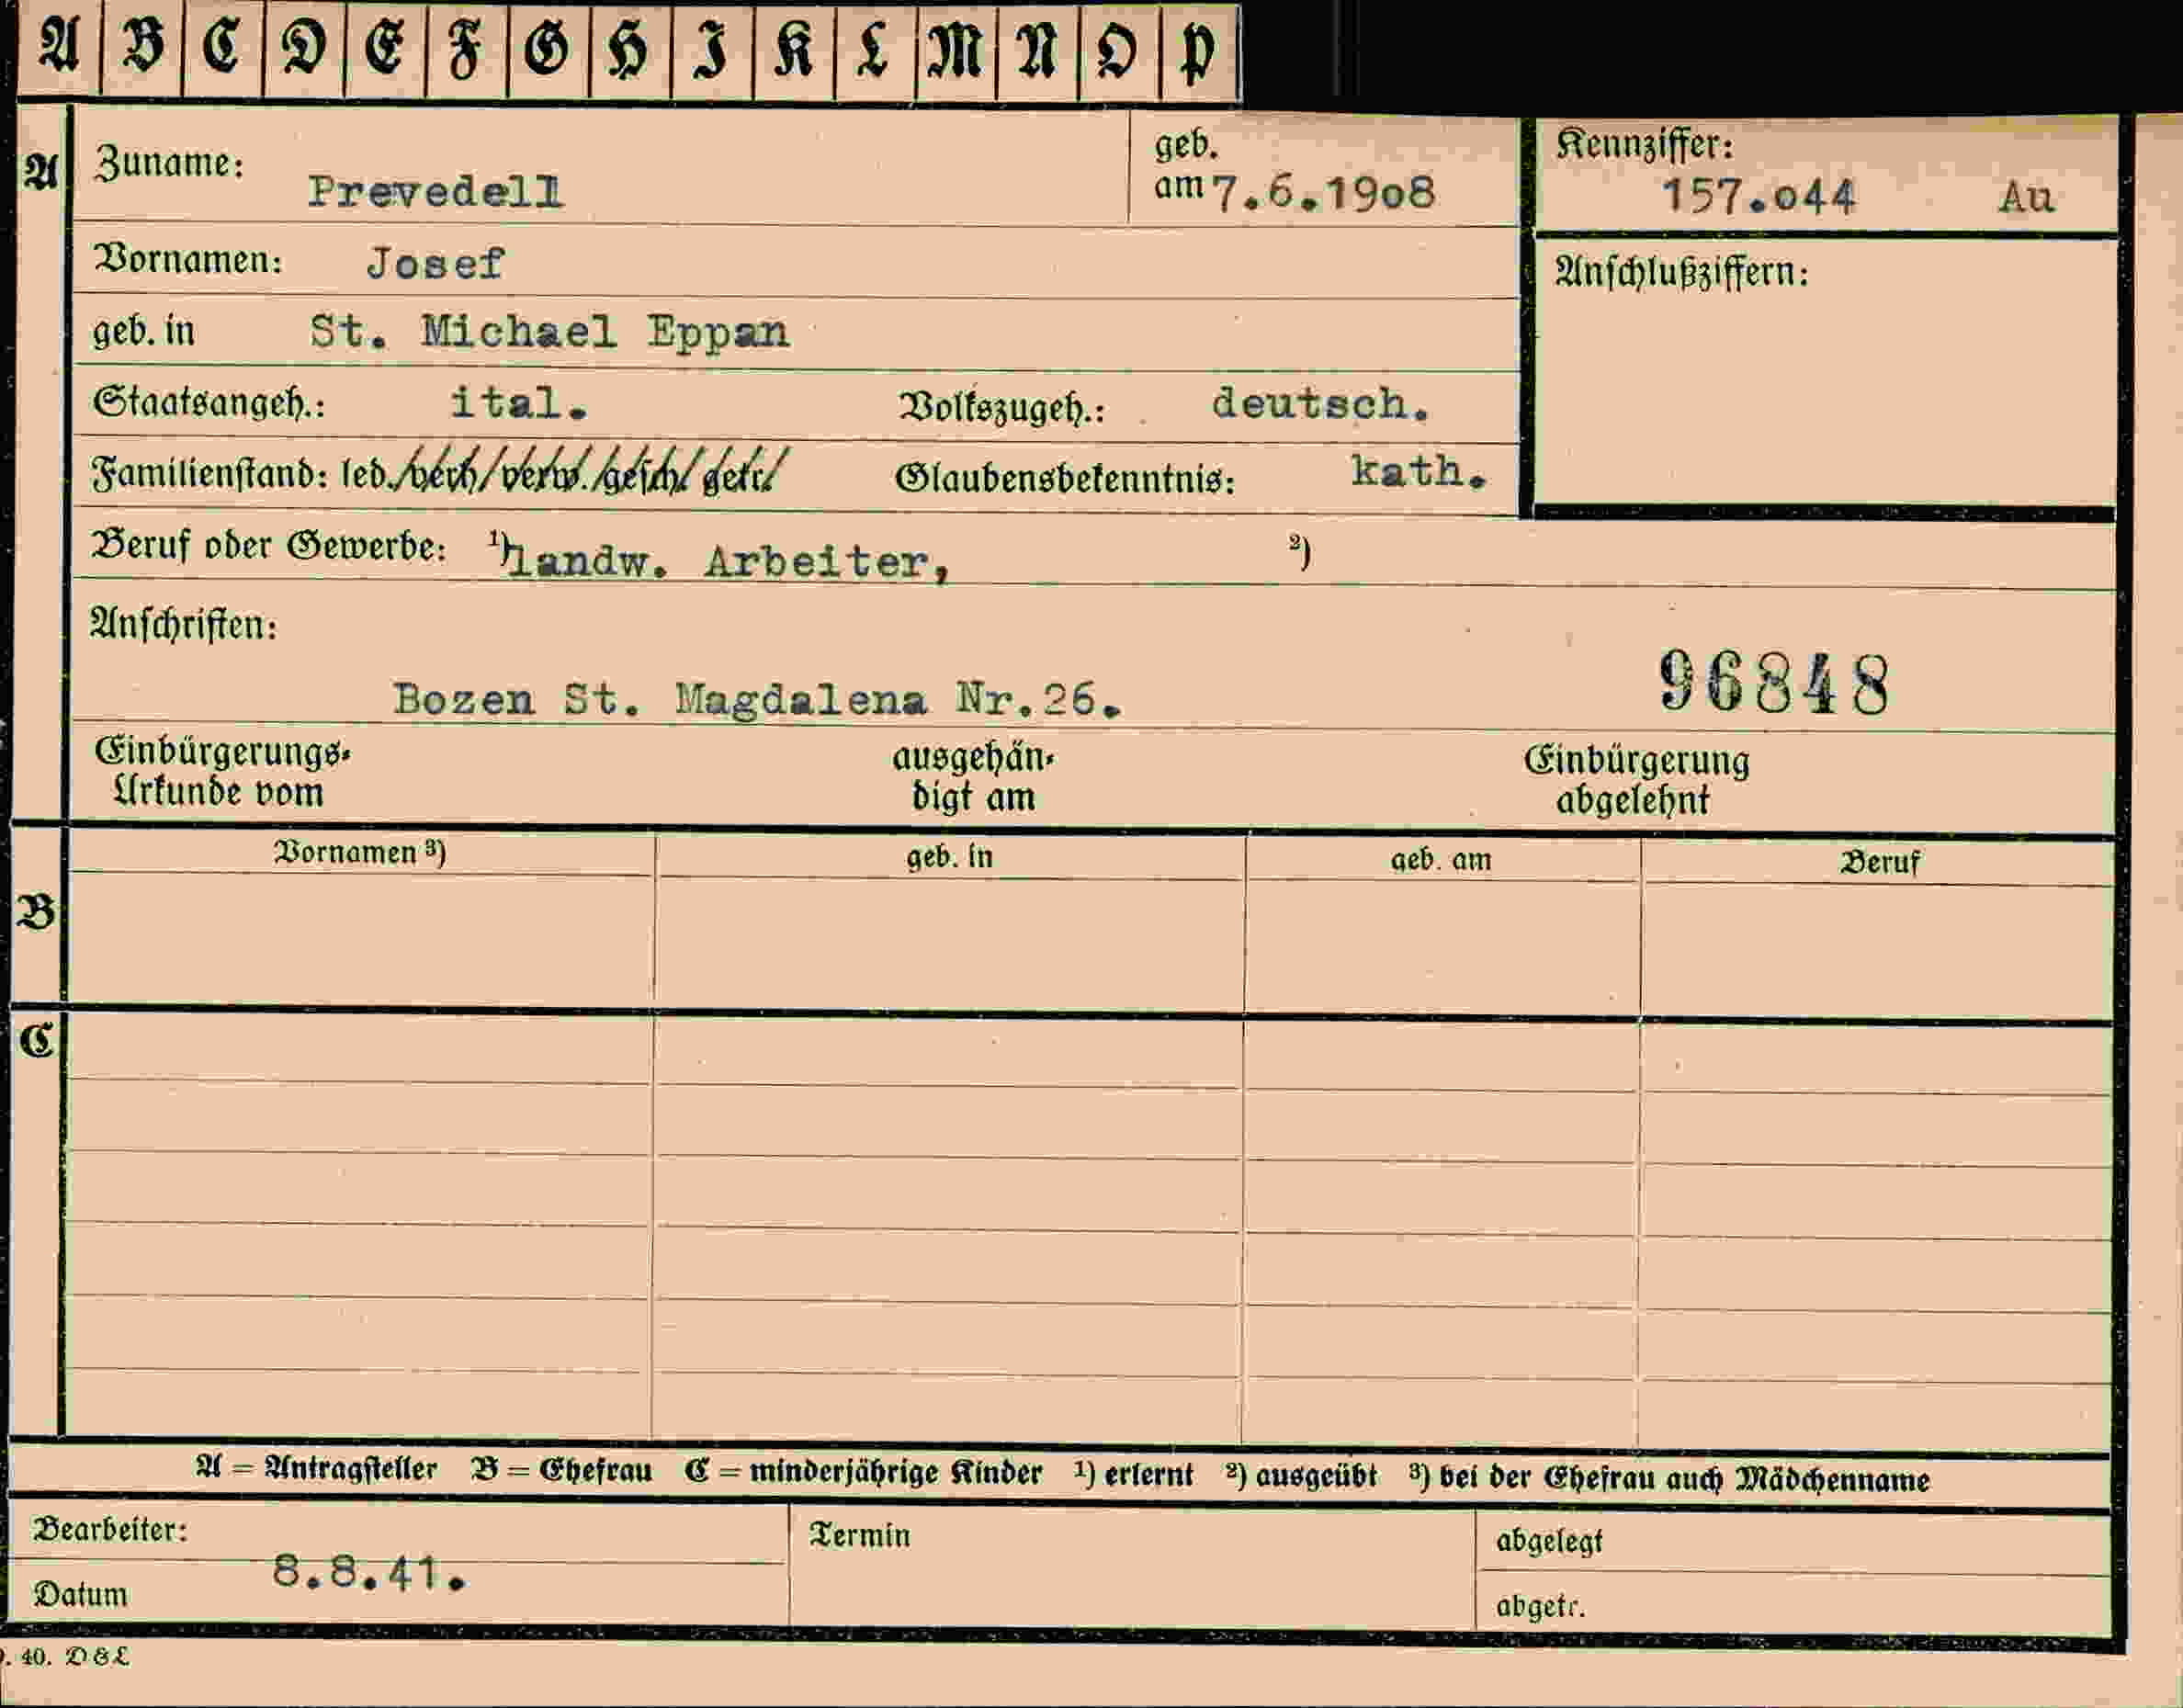 A B C D E F G H I K L M N O P
A Zuname: Prevedell geb. am 7.6.1908 Kennziffer: 157.044 Au
Vornamen: Josef Anschlußziffern:
geb. in St. Michael Eppan
Staatsangeh.: ital. Volkszugeh.: deutsch.
Familienstand: led./verh/verw./gesch/getr/ Glaubensbekenntnis: kath.
Beruf oder Gewerbe: ¹) landw. Arbeiter, ²)
Anschriften:
96848
Bozen St. Magdalena Nr.26.
Einbürgerungs- ausgehän- Einbürgerung
Urkunde vom digt am abgelehnt
Vornamen ³) geb. in geb. am Beruf
B
C
A = Antragsteller B = Ehefrau C = minderjährige Kinder ¹) erlernt ²) ausgeübt ³) bei der Ehefrau auch Mädchenname
Bearbeiter: Termin abgelegt
8.8.41.
Datum abgetr.
. 40. D&L